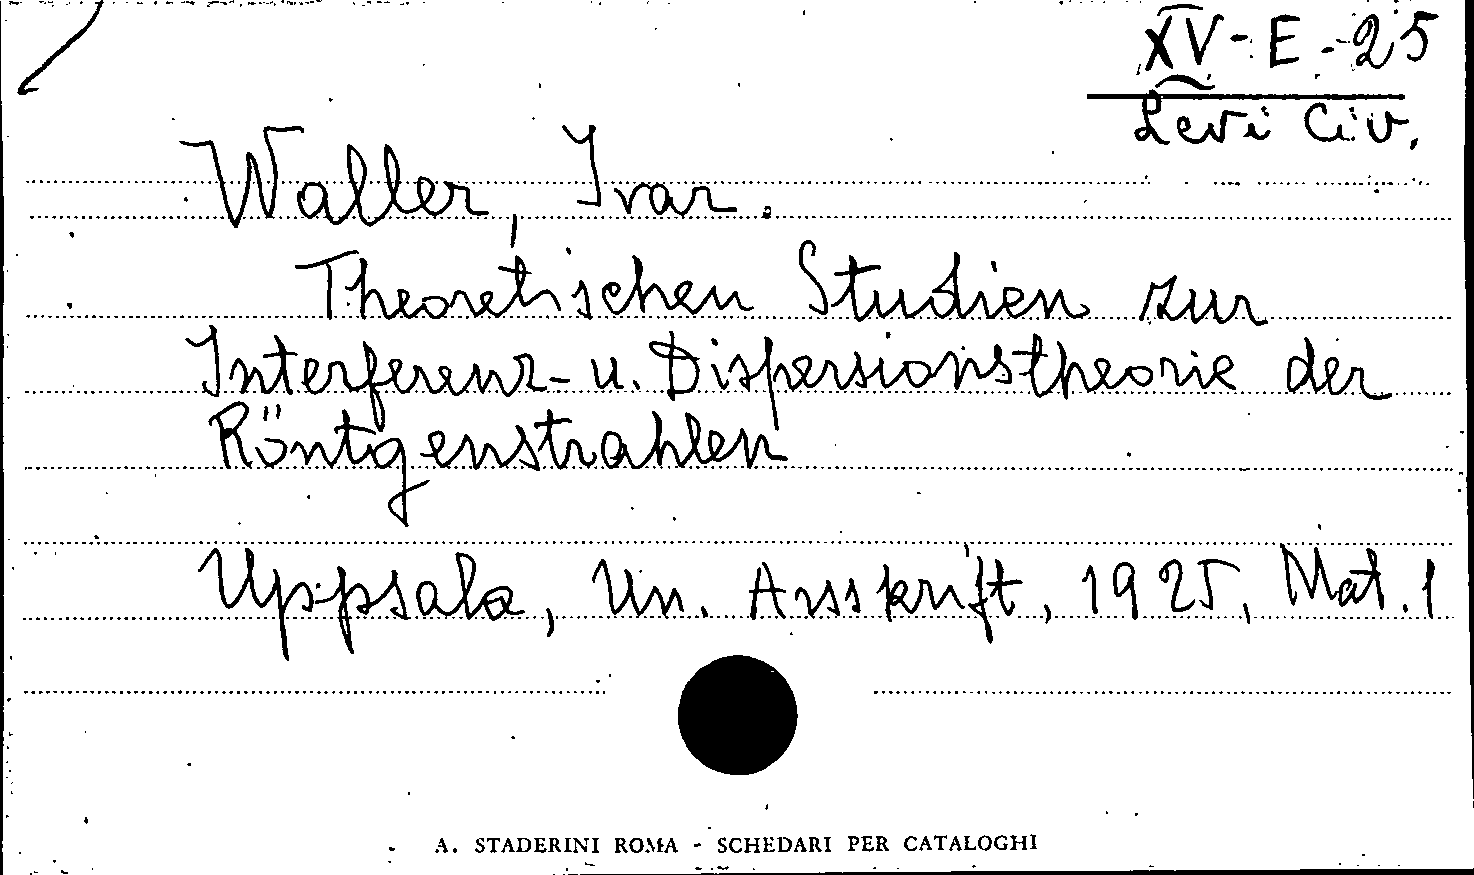 XV-E-25
Levi Civ.
Waller, Ivar.
Theoretischen Studien zur
Interferenz- u. Dispersionstheorie der
Röntgenstrahlen
Uppsala, Un. Arsskrift, 1925, Mat. 1
A. STADERINI ROMA - SCHEDARI PER CATALOGHI